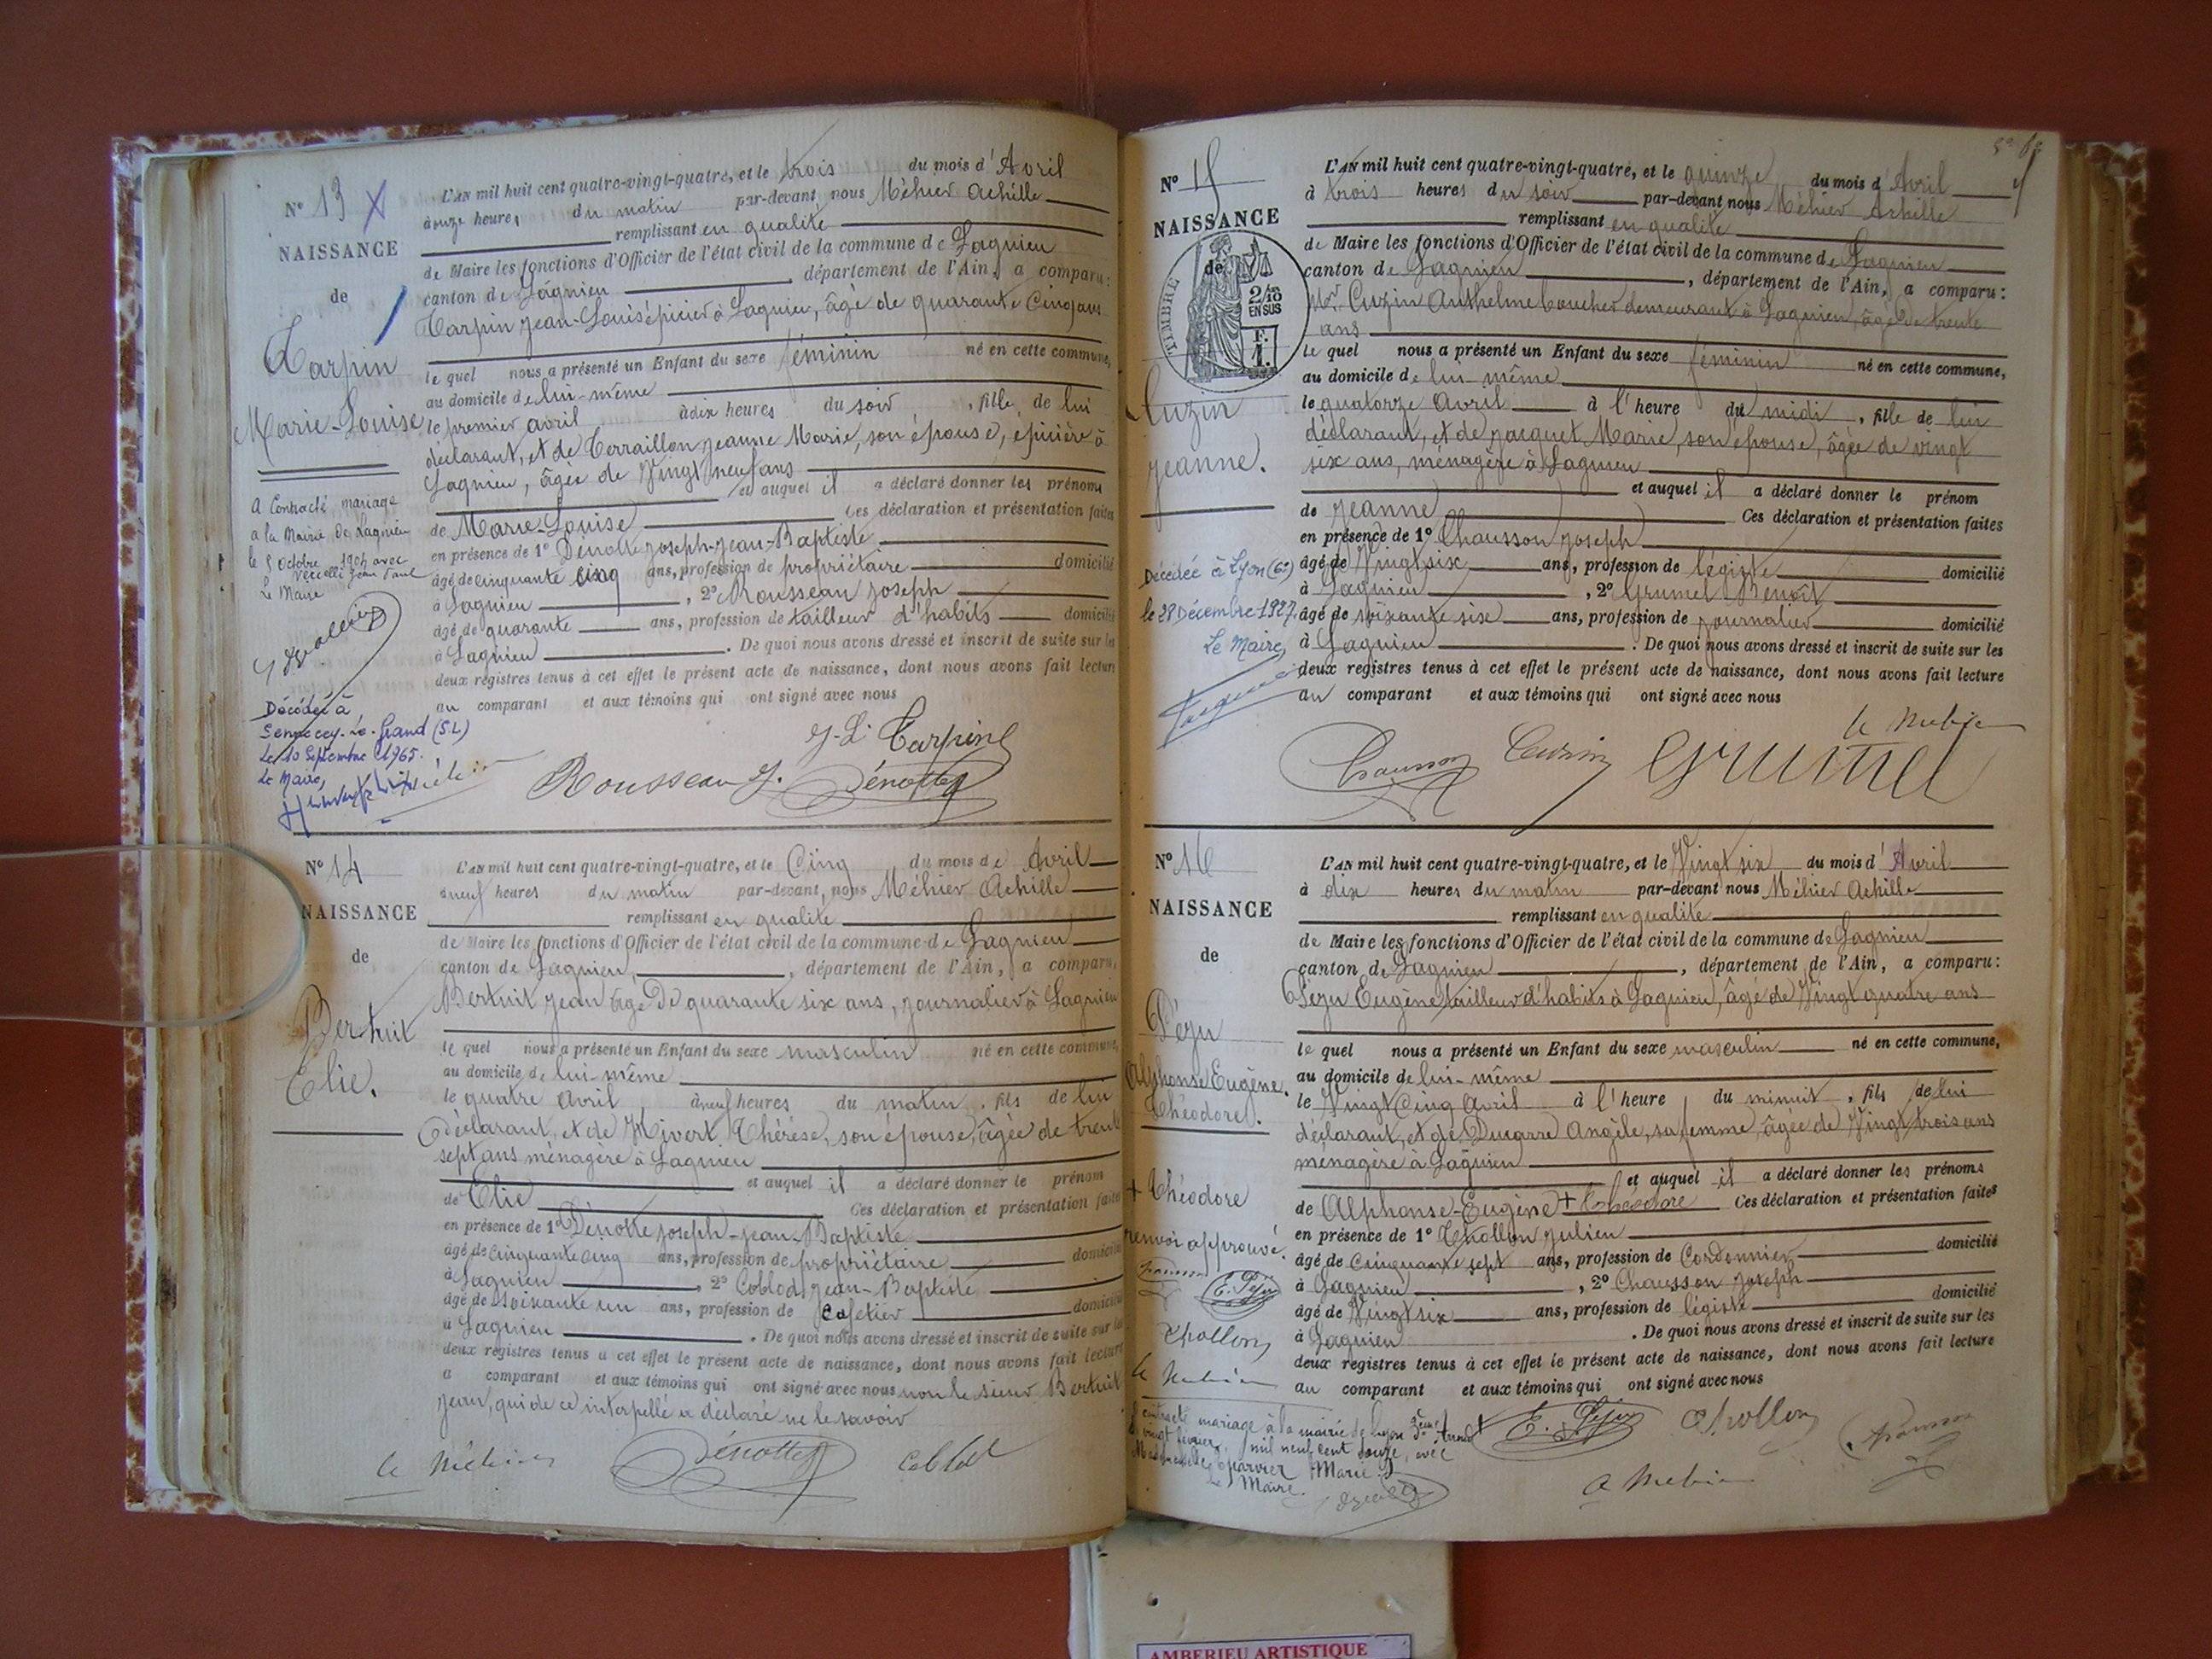 N° 13 X
NAISSANCE
de
Tarpin
Marie-Louise
A Contracté mariage
a la Mairie de Lagnieu
le 5 Octobre 1904 avec
Vercelli Jean Paul
Le Maire
Décédée à
Sennecey-le-Grand (S.L)
le 10 Septembre 1965.
Le Maire,
L'AN mil huit cent quatre-vingt-quatre, et le trois du mois d'Avril
à onze heures du matin par-devant nous Méhier Achille
remplissant en qualité
de Maire les fonctions d'Officier de l'état civil de la commune de Lagnieu
canton de Lagnieu, département de l'Ain, a comparu:
Tarpin Jean-Louis épicier à Lagnieu, âgé de quarante Cinq ans
le quel nous a présenté un Enfant du sexe féminin né en cette commune,
au domicile de lui-même
le premier avril à dix heures du soir, fille de lui
déclarant, et de Terraillon Jeanne Marie, son épouse, épicière à
Lagnieu, âgée de Vingt neuf ans
et auquel il a déclaré donner les prénoms
de Marie-Louise Ces déclaration et présentation faites
en présence de 1° Dénotte Joseph-Jean-Baptiste
âgé de cinquante cinq ans, profession de propriétaire domicilié
à Lagnieu, 2° Rousseau Joseph
âgé de quarante ans, profession de tailleur d'habits domicilié
à Lagnieu. De quoi nous avons dressé et inscrit de suite sur les
deux registres tenus à cet effet le présent acte de naissance, dont nous avons fait lecture
au comparant et aux témoins qui ont signé avec nous
J. L. Tarpin
Rousseau J. Dénotte
N° 14
NAISSANCE
de
Bertuit
Elie.
L'AN mil huit cent quatre-vingt-quatre, et le Cinq du mois de Avril
à neuf heures du matin par-devant nous Méhier Achille
remplissant en qualité
de Maire les fonctions d'Officier de l'état civil de la commune de Lagnieu
canton de Lagnieu, département de l'Ain, a comparu,
Bertuit Jean âgé de quarante six ans, journalier à Lagnieu
le quel nous a présenté un Enfant du sexe masculin né en cette commune,
au domicile de lui-même
le quatre avril à neuf heures du matin, fils de lui
déclarant, et de Mivert Thérèse, son épouse, âgée de trente
sept ans ménagère à Lagnieu
et auquel il a déclaré donner le prénom
de Elie Ces déclaration et présentation faites
en présence de 1° Dénotte Joseph-Jean-Baptiste
âgé de cinquante cinq ans, profession de propriétaire domicilié
à Lagnieu, 2° Coblod Jean-Baptiste
âgé de soixante un ans, profession de cafetier domicilié
à Lagnieu. De quoi nous avons dressé et inscrit de suite sur les
deux registres tenus à cet effet le présent acte de naissance, dont nous avons fait lecture
a comparant et aux témoins qui ont signé avec nous non le sieur Bertuit
Jean, qui de ce interpellé a déclaré ne le savoir
a Méhier Dénotte Coblod
N° 15
NAISSANCE
de
TIMBRE
2/10 EN SUS
F. 1.
Cuzin
Jeanne.
Décédée à Lyon (6e)
le 28 Décembre 1927.
Le Maire,
L'AN mil huit cent quatre-vingt-quatre, et le quinze du mois d Avril
à trois heures du soir par-devant nous Méhier Achille
remplissant en qualité
de Maire les fonctions d'Officier de l'état civil de la commune de Lagnieu
canton de Lagnieu, département de l'Ain, a comparu:
Mr Cuzin Anthelme boucher demeurant à Lagnieu, âgé de trente
ans
le quel nous a présenté un Enfant du sexe féminin né en cette commune,
au domicile de lui même
le quatorze Avril à l'heure du midi, fille de lui
déclarant, et de Jacquet Marie, son épouse, âgée de vingt
six ans, ménagère à Lagnieu
et auquel il a déclaré donner le prénom
de Jeanne Ces déclaration et présentation faites
en présence de 1° Chausson Joseph
âgé de Vingt six ans, profession de légiste domicilié
à Lagnieu, 2° Grumel Benoît
âgé de soixante six ans, profession de journalier domicilié
à Lagnieu. De quoi nous avons dressé et inscrit de suite sur les
deux registres tenus à cet effet le présent acte de naissance, dont nous avons fait lecture
au comparant et aux témoins qui ont signé avec nous
a Méhier
Chausson Cuzin Grumel
N° 16
NAISSANCE
de
Péju
Alphonse Eugène.
Théodore.
+ Théodore
renvoi approuvé.
Chausson E. Péju
Thollon
a Méhier
contracté mariage à la mairie de Lyon 3eme Arrondt
le vingt février mil neuf cent douze, avec
Mademoiselle Marie
Le Maire.
L'AN mil huit cent quatre-vingt-quatre, et le Vingt six du mois d'Avril
à dix heures du matin par-devant nous Méhier Achille
remplissant en qualité
de Maire les fonctions d'Officier de l'état civil de la commune de Lagnieu
canton de Lagnieu, département de l'Ain, a comparu:
Péju Eugène tailleur d'habits à Lagnieu, âgé de Vingt quatre ans
le quel nous a présenté un Enfant du sexe masculin né en cette commune,
au domicile de lui-même
le Vingt Cinq Avril à l'heure du minuit, fils de lui
déclarant, et de Ducarre Angèle, sa femme, âgée de Vingt trois ans
ménagère à Lagnieu
et auquel il a déclaré donner les prénoms
de Alphonse-Eugène + Théodore Ces déclaration et présentation faites
en présence de 1° Thollon Julien
âgé de Cinquante sept ans, profession de Cordonnier domicilié
à Lagnieu, 2° Chausson Joseph
âgé de Vingt six ans, profession de légiste domicilié
à Lagnieu. De quoi nous avons dressé et inscrit de suite sur les
deux registres tenus à cet effet le présent acte de naissance, dont nous avons fait lecture
au comparant et aux témoins qui ont signé avec nous
E. Péju Thollon Chausson
a Méhier
AMBERIEU ARTISTIQUE